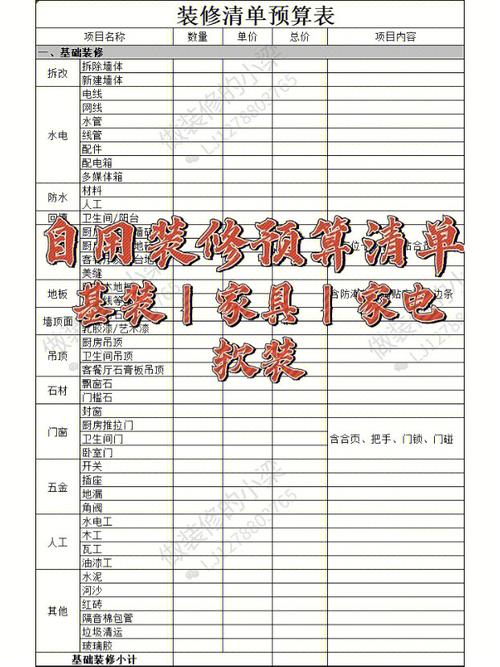 装修清单预算表
项目名称 数量 单价 总价 项目内容
一、基础装修
拆改
拆除墙体
新建墙体
水电
电线
网线
水管
线管
配件
配电箱
多媒体箱
防水
材料
人工
卫生间/阳台
自用装修预算清单
美缝
地板
基装|家具|家电
墙顶面
乳胶漆/艺术漆
软装
吊顶
厨房吊顶
卫生间吊顶
客餐厅石膏板吊顶
石材
飘窗石
门槛石
门窗
封窗
厨房推拉门
卫生间门
卧室门
含合页、把手、门锁、门碰
五金
开关
插座
地漏
角阀
人工
水电工
木工
瓦工
油漆工
其他
水泥
河沙
红砖
隔音棉包管
垃圾清运
玻璃胶
基础装修小计
做装修的小梁
LJ1278803765
做装修的小梁
LJ1278803765